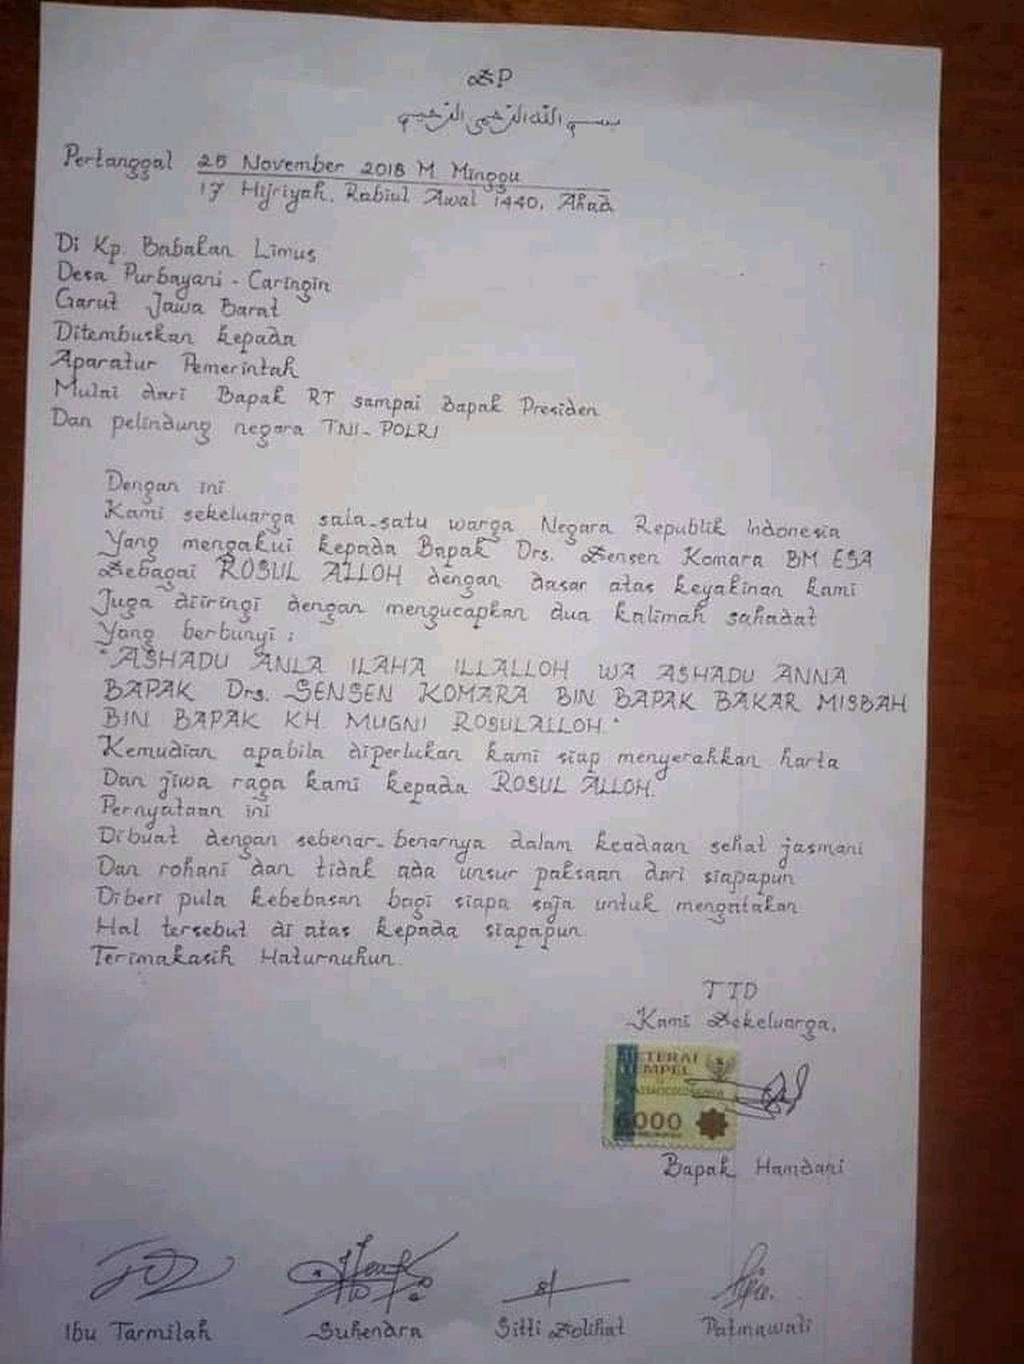 SP
بسم الله الرحمن الرحيم
Pertanggal 25 November 2018 M Minggu
17 Hijriyah, Rabiul Awal 1440, Ahad
Di Kp. Babakan Limus
Desa Purbayani - Caringin
Garut Jawa Barat
Ditembuskan kepada
Aparatur Pemerintah
Mulai dari Bapak RT sampai Bapak Presiden
Dan pelindung negara TNI-POLRI
Dengan ini
Kami sekeluarga sala-satu warga Negara Republik Indonesia
Yang mengakui kepada Bapak Drs. Sensen Komara BM ESA
Sebagai ROSUL ALLOH dengan dasar atas keyakinan kami
Juga diiringi dengan mengucapkan dua kalimah sahadat
Yang berbunyi :
"ASHADU ANLA ILAHA ILLALLOH WA ASHADU ANNA
BAPAK Drs. SENSEN KOMARA BIN BAPAK BAKAR MISBAH
BIN BAPAK KH. MUGNI ROSULALLOH."
Kemudian apabila diperlukan kami siap menyerahkan harta
Dan jiwa raga kami kepada ROSUL ALLOH.
Pernyataan ini
Dibuat dengan sebenar-benarnya dalam keadaan sehat jasmani
Dan rohani dan tidak ada unsur paksaan dari siapapun
Diberi pula kebebasan bagi siapa saja untuk mengatakan
Hal tersebut di atas kepada siapapun
Terimakasih Haturnuhun.
TTD
Kami Sekeluarga,
METERAI
TEMPEL
6000
Bapak Hamdani
Ibu Tarmilah Suhendra Sitti Solihat Patmawati